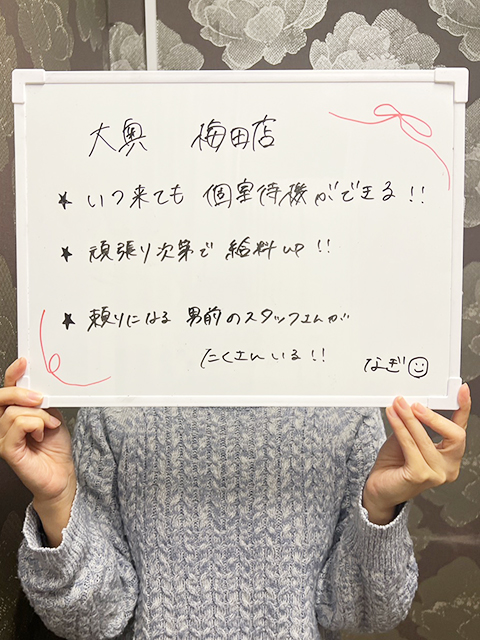 大奥 梅田店
★ いつ来ても 個室待機ができる!!
★ 頑張り次第で 給料UP!!
★ 頼りになる 男前のスタッフさんが
たくさんいる!!
なぎ☺